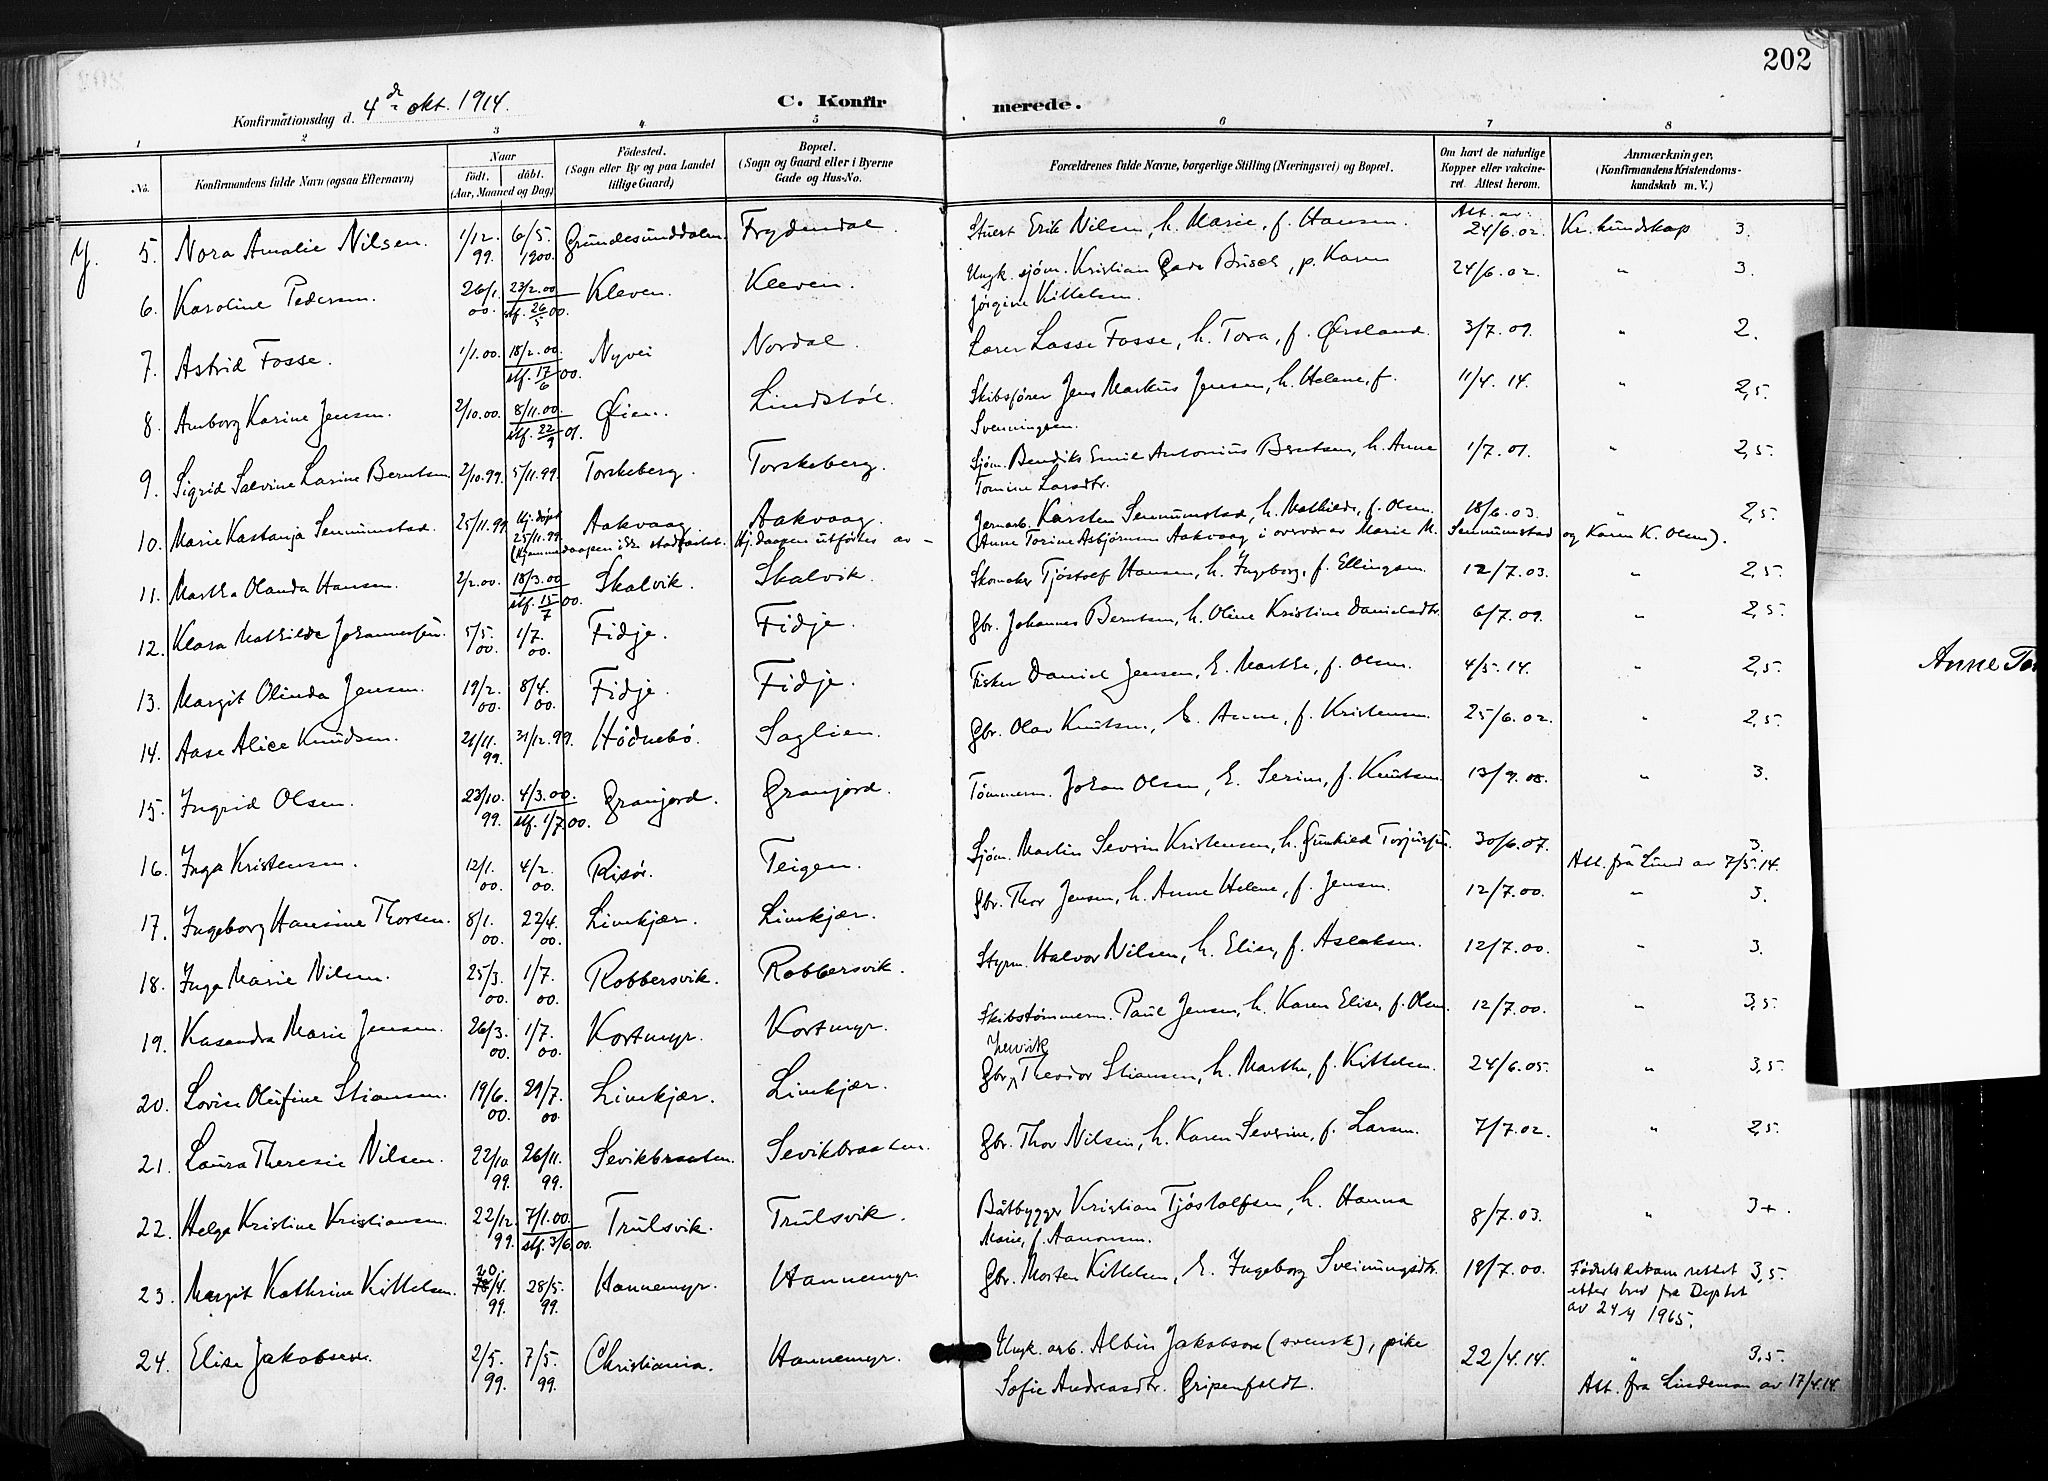 202
Konfirmationsdag d. 4de okt. 1914.
C. Konfirmerede.
1 2 3 4 5 6 7 8
No.
Konfirmandens fulde Navn (ogsaa Efternavn)
Naar
født. døbt.
(Aar, Maaned og Dag)
Fødested.
(Sogn eller By og paa Landet
tillige Gaard)
Bopæl.
(Sogn og Gaard eller i Byerne
Gade og Hus-No.
Forældrenes fulde Navne, borgerlige Stilling (Næringsvei) og Bopæl.
Om havt de naturlige
Kopper eller vakcine-
ret. Attest herom.
Anmærkninger.
(Konfirmandens Kristendoms-
kundskab m. V.)
5. Nora Amalie Nilsen. 1/12. 99. 6/5. 1900. Grundesunddalen. Frydendal. Stuert Erik Nilsen, h. Marie, f. Hansen. Att. av: 24/6.02. Kr. kundskap 3.
6. Karoline Pedersen. 26/1. 00. 23/2.00 stf. 26/5 00. Kleven. Kleven. Ungk. sjøm. Kristian Gade Brisch, p. Karen 24/6.02. " 3.
Jørgine Kittelsen.
7. Astrid Fosse. 1/1.00. 18/2.00. stf. 17/6 00. Nyvei Nordal. Lærer Lasse Fosse, h. Tora, f. Øisland. 3/7.01. " 2.
8. Amborg Karine Jensen. 2/10.00. 8/11.00. stf. 22/9 01. Øien. Lindstøl. Skibsfører Jens Markus Jensen, h. Helene, f. 11/4.14. " 2,5.
Svenningsen.
9. Sigrid Salvine Larine Berntsen 2/10.99. 5/11.99. Torskeberg. Torskeberg. Sjøm. Bendiks Emil Antonius Berntsen, h. Anne 1/7.01. " 2,5.
Tomine Larsdtr.
10. Marie Kastanja Sennumstad. 25/11.99. Hj. døpt 25/11.99. Aakvaag. Aakvaag. Jernarb. Karsten Sennumstad, h. Mathilde, f. Olsen. 18/6.03. " 2,5.
(Hjemmedaapen ikke stadfæstet. Hj. daapen utførtes av - (Anne Torine Asbjørnsen Aakvaag i overvær av Marie M. Sennumstad og Karen K. Olsen).
11. Martha Olanda Hansen. 2/2.00. 18/3.00 stf. 15/7 00. Skalvik. Skalvik. Skomaker Tjøstolf Hansen, h. Ingeborg, f. Ellingsen. 12/7.03. " 2,5.
12. Klara Mathilde Johannesen. 5/5. 00. 1/7. 00. Fidje. Fidje. Gbr. Johannes Berntsen, h. Oline Kristine Danielsdtr. 6/7.09. " 2,5.
13. Margit Olinda Jensen. 19/2. 00. 8/4. 00. Fidje. Fidje. Fisker Daniel Jensen, h. Marthe, f. Olsen. 4/5.14. " 2,5.
14. Aase Alice Knudsen. 21/11. 99. 31/12.99. Hødnebø. Saglien. Gbr. Olav Knutsen, h. Anne, f. Kristensen. 25/6.02. " 2,5.
15. Ingrid Olsen. 23/10. 99. 4/3.00. stf. 1/7.00. Granjord. Granjord. Tømmerm. Johan Olsen, h. Serine, f. Knutsen. 13/9.08. " 3.
16. Inga Kristensen. 12/1. 00. 4/2. 00. Risør. Teigen. Sjøm. Martin Severin Kristensen, h. Gunhild Torjusen. 30/6.07. " 3.
Att. fra Lund av 7/5.14.
17. Ingeborg Hansine Thorsen. 8/1. 00. 22/4. 00. Limkjær. Limkjær. Gbr. Thor Jensen, h. Anne Helene, f. Jensen. 12/7.00. " 3.
18. Inga Marie Nilsen. 25/3. 00. 1/7. 00. Robbersvik. Robbersvik. Styrm. Halvor Nilsen, h. Elise, f. Aslaksen. 12/7.00. " 3.
19. Kasandra Marie Jensen. 26/3. 00. 1/7. 00. Kortmyr. Kortmyr. Skibstømmerm. Paul Jensen, h. Karen Elise, f. Olsen. 12/7.00. " 3,5.
20. Lovise Olufine Stiansen. 19/6. 00. 29/7. 00. Limkjær. Limkjær. Gbr. Theodor Stiansen, h. Marthe, f. Kittelsen. 24/6.05. " 3,5.
21. Laura Theresie Nilsen. 22/10. 99. 26/11. 99. Sevikbraaten. Sevikbraaten. Gbr. Thor Nilsen, h. Karen Severine, f. Larsen. 7/7.02. " 2,5.
22. Helga Kristine Kristiansen. 22/12. 99. 7/1.00. stf. 3/6.00. Trulsvik. Trulsvik. Båtbygger Kristian Tjøstolfsen, h. Hanna 8/7.03. " 3+.
Marie, f. Aanonsen.
23. Margit Kathrine Kittelsen. 20. /4. 99. 28/5. 99. Hannemyr. Hannemyr. Gbr. Morten Kittelsen, h. Ingeborg Sveinungsdtr. 19/7.00. Fødselsdatoen rettet 3,5.
etter brev fra Dep'tet
av 24/4 1965.
24. Elise Jakobsen. 2/5. 99. 7/5. 99. Christiania. Hannemyr. Ungk. arb. Albin Jakobsson (svensk), pike 22/4.14. " 3,5.
Sofie Andreasdtr. Gripenfeldt. Att. fra Lindeman av 17/4.14.
Anne Tor